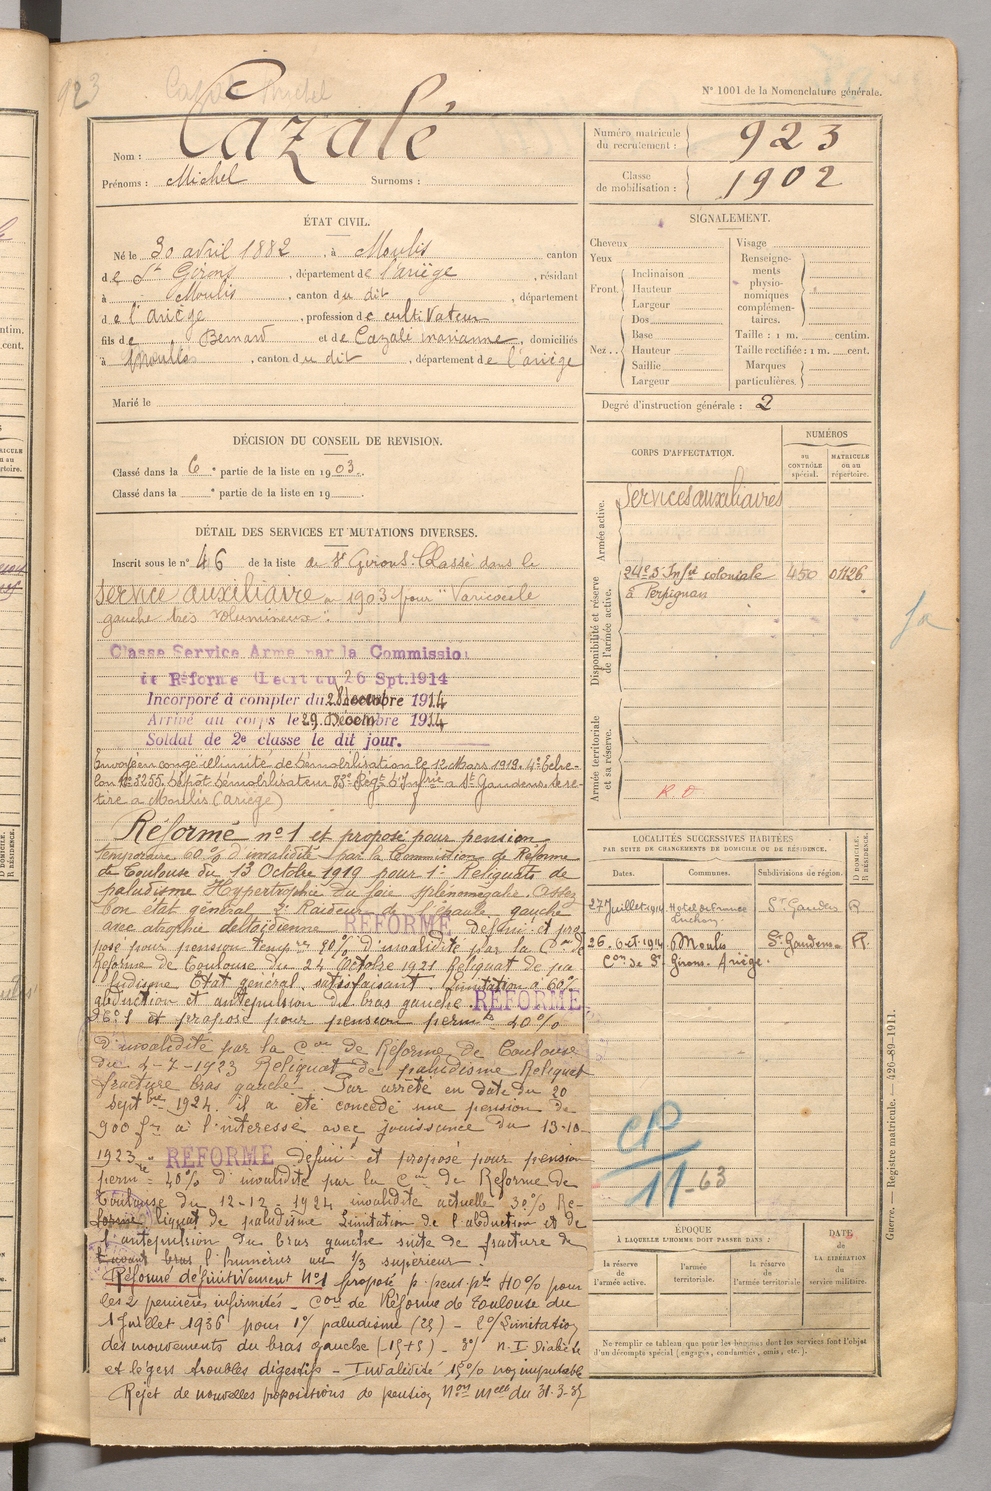 923
Cazalé Michel
N° 1001 de la Nomenclature générale.
Nom : Cazalé
Prénoms : Michel Surnoms :
Numéro matricule du recrutement : 923
Classe de mobilisation : 1902
ÉTAT CIVIL.
Né le 30 avril 1882, à Moulis canton
de St Girons, département de l'ariège, résidant
à Moulis, canton du dit, département
de l'ariège, profession de cultivateur
fils de Bernard et de Cazalé marianne, domiciliés
à Moulis, canton du dit, département de l'ariège
Marié le
SIGNALEMENT.
Cheveux
Yeux
Front. Inclinaison
Hauteur
Largeur
Nez .. Dos
Base
Hauteur
Saillie
Largeur
Visage
Renseignements physionomiques complémentaires.
Taille : 1 m. centim.
Taille rectifiée : 1 m. cent.
Marques particulières.
Degré d'instruction générale : 2
DÉCISION DU CONSEIL DE REVISION.
Classé dans la 6e partie de la liste en 1903.
Classé dans la e partie de la liste en 19
DÉTAIL DES SERVICES ET MUTATIONS DIVERSES.
Inscrit sous le n° 46 de la liste de St Girons. Classé dans le
service auxiliaire en 1903 pour "Varicocèle
gauche très volumineux".
Classe Service Armé par la Commission
de Réforme (Décrt du 26 Spt.1914
Incorporé à compter du 28 décembre 1914
Arrivé au corps le 29 Décembre 1914
Soldat de 2e classe le dit jour.
Envoyé en congé illimité de démobilisation le 12 Mars 1919. 4e Eche-
lon No 3255. Dépôt démobilisateur 83e Régt d'Infrie à St Gaudens. Se re-
tire à Moulis (Ariège)
Réformé n° 1 et proposé pour pension
temporaire 60% d'invalidité par la Commission de Réforme
de Toulouse du 13 Octobre 1919 pour 1° Reliquats de
paludisme Hypertrophie du foie splénomégalie. Assez
bon état général 2° Raideur de l'épaule gauche
avec atrophie deltoïdienne RÉFORMÉ définit et pro
posé pour pension tempre 80% d'invalidité par la Con de
Réforme de Toulouse du 24 Octobre 1921 Reliquat de pa
ludisme Etat général satisfaisant. Limitation à 60%
abduction et antépulsion du bras gauche. RÉFORMÉ
N° 1 et proposé pour pension permte 40%
d'invalidité par la Con de Réforme de Toulouse
du 4-7-1923 Reliquat de paludisme Reliquat
fracture bras gauche. Par arrêté en date du 20
septbre 1924 il a été concédé une pension de
900 fr à l'intéressé avec jouissance du 13-10-
1923. RÉFORMÉ définit et proposé pour pension
perm 40% d'invalidité par la Con de Réforme de
Toulouse du 12-12-1924 invalidité actuelle 30% Re-
liquat de paludisme Limitation de l'abduction et de
l'antépulsion du bras gauche suite de fracture de
l'humérus au 1/3 supérieur.
Réformé définitivement N°1 proposé p. pens. pte 40% pour
les 2 premières infirmités - Con de Réforme de Toulouse du
1 Juillet 1936 pour 1°/ paludisme (25) - 2°/ Limitation
des mouvements du bras gauche (15+5) - 3°/ n. I Diabète
et légers troubles digestifs - Invalidité 15% non imputable
Rejet de nouvelles propositions de pension Non Mell du 31-3-37
CORPS D'AFFECTATION.
NUMÉROS
au CONTRÔLE spécial.
MATRICULE ou au répertoire.
Armée active.
Services auxiliaires
Disponibilité et réserve de l'armée active.
24e d'Infie coloniale 450 01126
à Perpignan
Armée territoriale et sa réserve.
R.D
LOCALITÉS SUCCESSIVES HABITÉES
PAR SUITE DE CHANGEMENTS DE DOMICILE OU DE RÉSIDENCE.
Dates. Communes. Subdivisions de région. D DOMICILE. R RÉSIDENCE.
27 Juillet 1914 Hotel de France St Gaudens R
Luchon
26. 6-t. 1914 Moulis St Gaudens R.
Con de St Girons. Ariège.
CP
11-63
ÉPOQUE
À LAQUELLE L'HOMME DOIT PASSER DANS :
la réserve de l'armée active.
l'armée territoriale.
la réserve de l'armée territoriale
DATE de LA LIBÉRATION du service militaire.
Ne remplir ce tableau que pour les hommes dont les services font l'objet
d'un décompte spécial (engagés, condamnés, omis, etc.).
Guerre. — Registre matricule. — 426-89-1911.